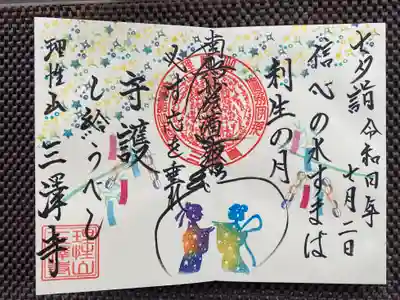 七夕詣 令和四年
七月二日
信心の水すまば
利生の月
南無妙法蓮華経
必ず応を垂れ
守護
し給うべし
理性山 三澤寺